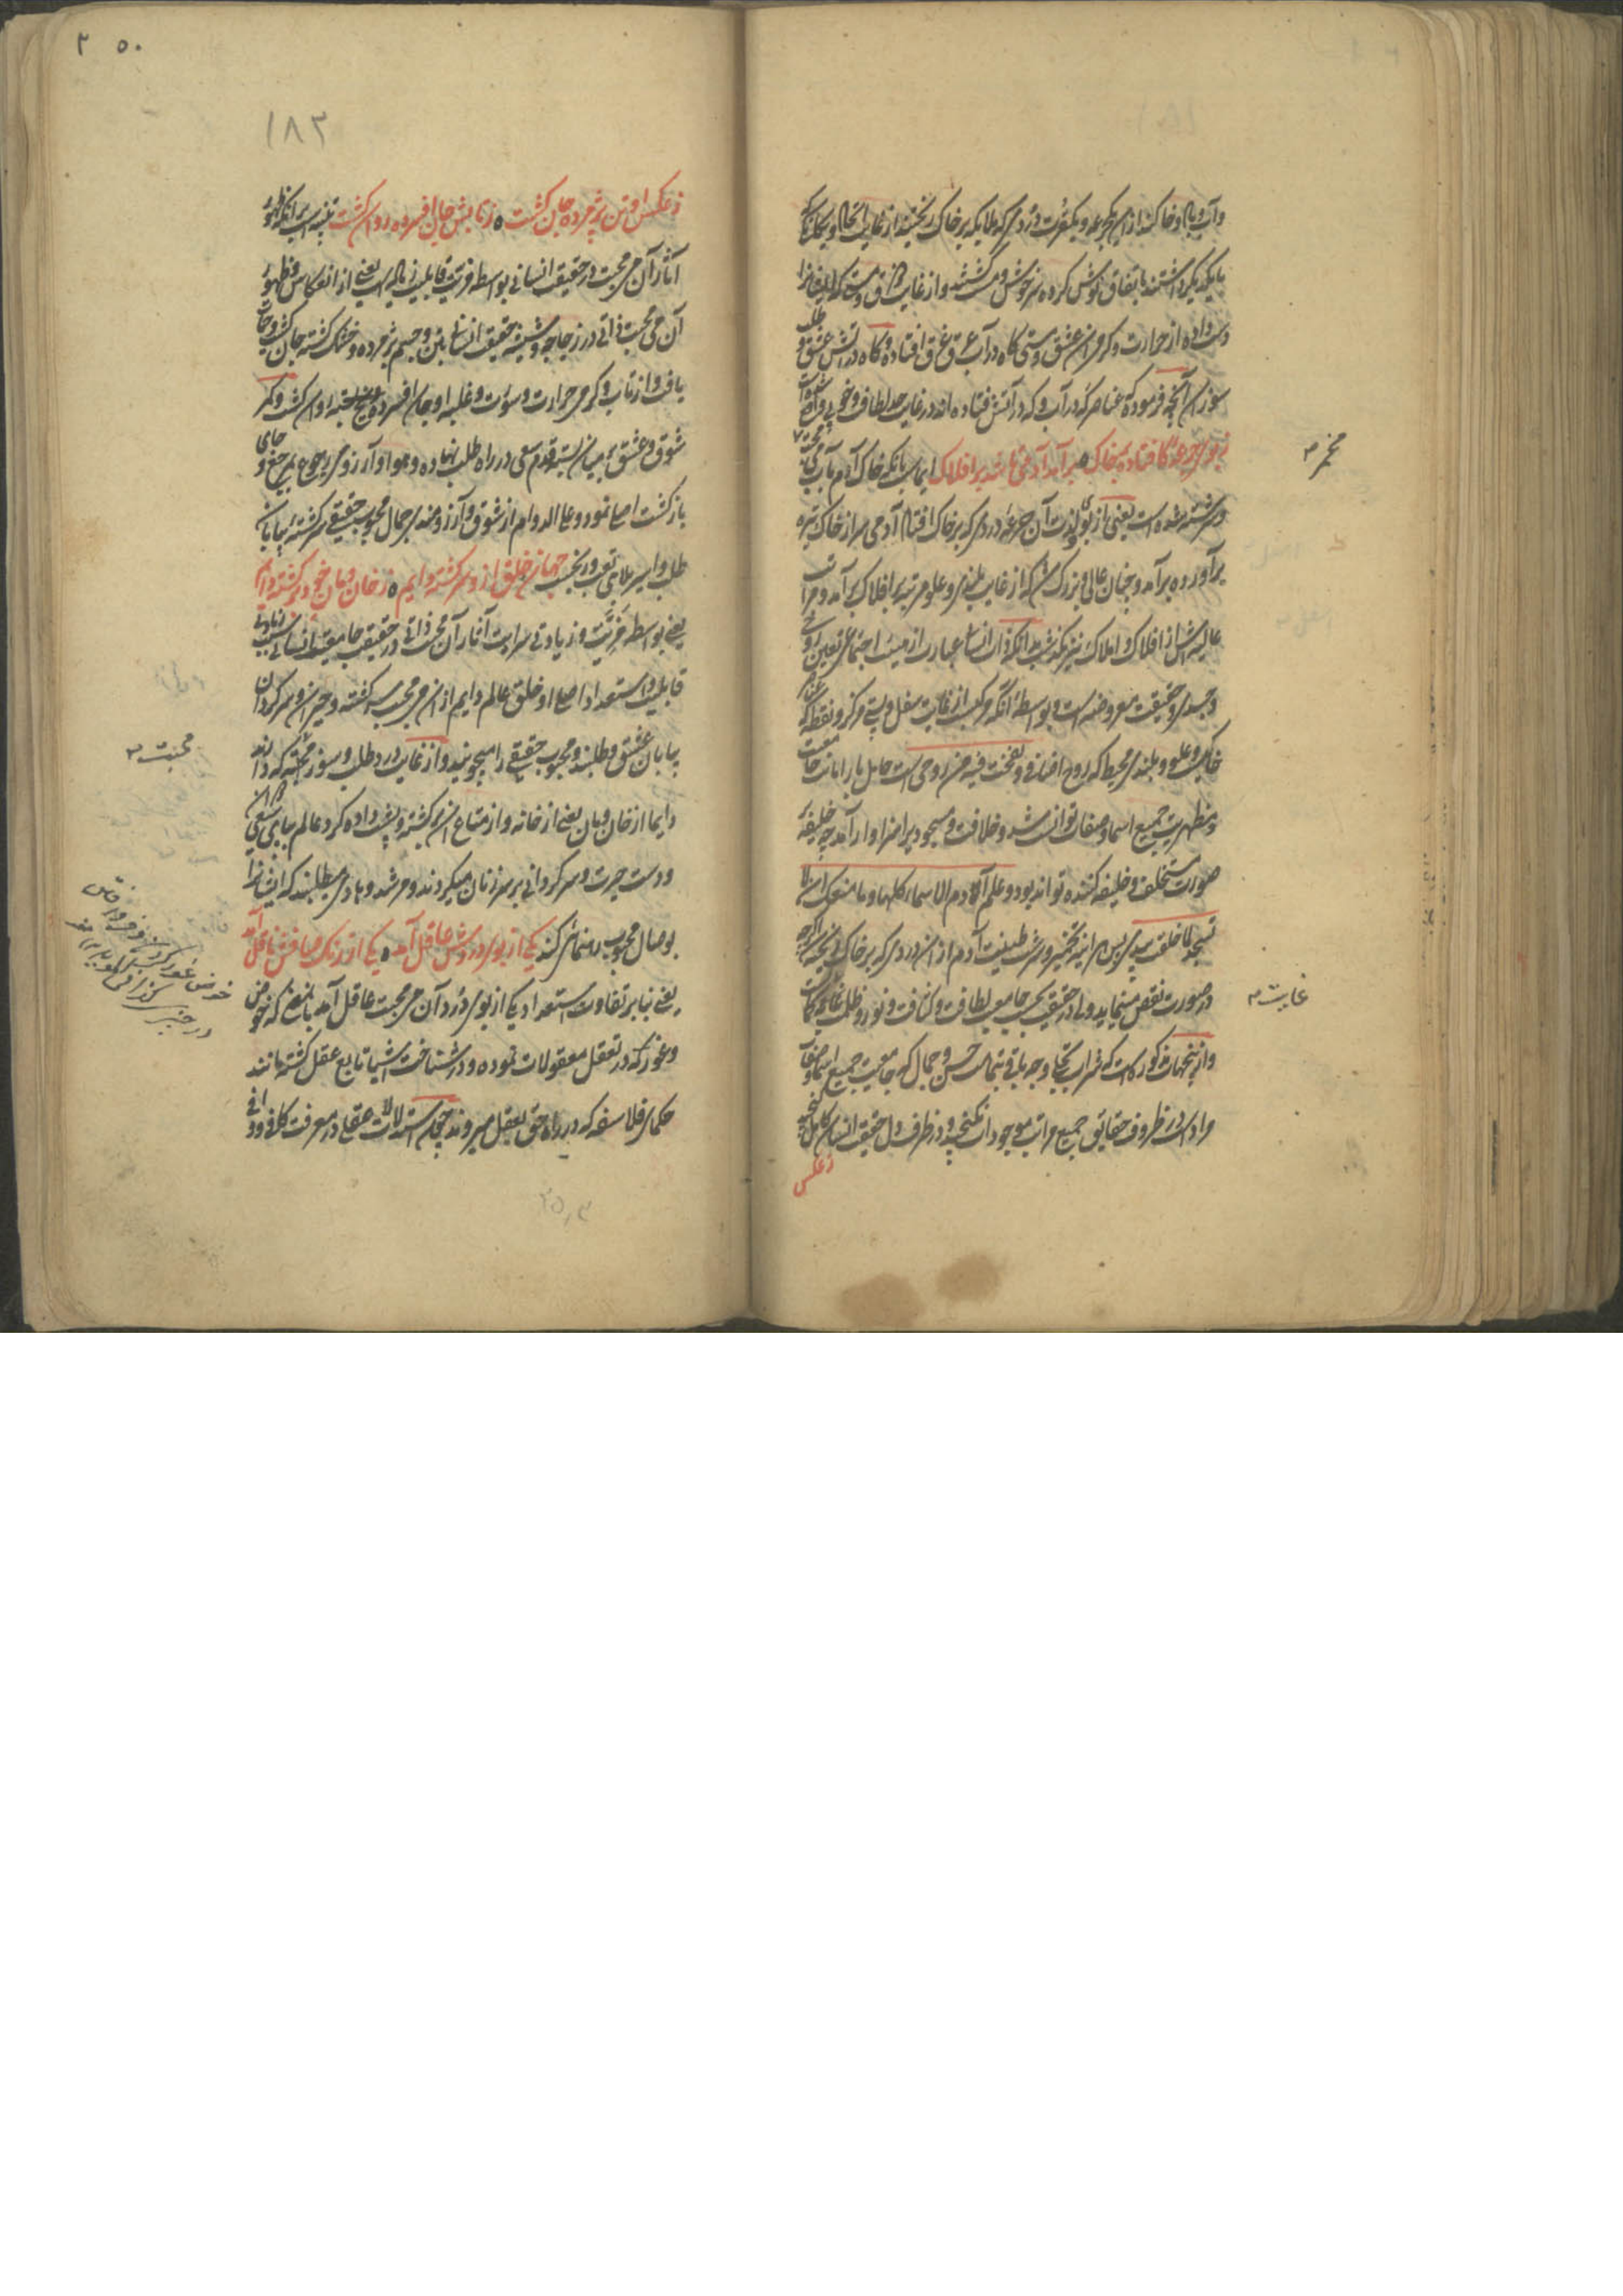 و آب و باد و خاکند ازین یک جرعه و یکقطرت دُردی که ملایکه بر خاک ریختند از غایت اتحاد و یگانگی که
با یکدیگر داشتند باتفاق نوش کرده سرخوش و مست گشتند و از غایت ذوق و مستی که ایشانرا
دست داده از حرارت و گرمی آن عشق و مستی گاه در آب عرق غرق افتاده و گاه در آتش عشق و طلب
سوزان آنچه فرموده که عناصر گه در آب و گه در آتش فتاده اند در غایت لطافت و خوبی واقع شده است
ز بوی جرعهٔ کافتاد بر خاک ٥ برآمد آدمی تا شد بر افلاک ایماست بآنکه خاک آدم بآب می محبت
سرشته شده است یعنی از بوی و لذت آن جرعهٔ دردی که بر خاک افتاد آدمی سر از خاک تیره
برآورده برآمد و چنان عالی و بزرگ شد که از غایت بلندی و علو مرتبه بر افلاک برآمد و مراتب
عالیه‌اش از افلاک و املاک نیز بگذشت بدانکه ذات انسانی عبارت از هیئت اجتماعی تعین روحی
و جسدی و حقیقت معروضه است و بواسطهٔ آنکه مرکب از غایت سفل و پستی مرکز و نقطه که عنصر
خاکست و علو و بلندی محیط که روح اضافی و نفخت فیه من روحی است حامل بار امانت جامعیت
و مظهریت جمیع اسما و صفات توانست شد و خلافت و مسجودیت را سزاوار آمد چه خلیفه
صورت مستخلف و خلیفه کننده تواند بود و علم آدم الاسماء کلها و ما منعک ان لا
تسجد لما خلقت بیدی پس هر آینه تخمیر و سرشت طینت آدم از آن دردی که بر خاک ریخته اگرچه
در صورت نقص مینماید ولی در حقیقت بحسب جامعیت لطافت و کثافت و نور و ظلمت غایت کمالست
و ازینجهات مذکور کاست که شراب تجلی وجه باقی بتمامت حسن و جمال که جامعیت جمیع اسما و صفات
مراد است در ظروف حقایق جمیع مراتب موجودات نگنجید و در ظرف دل حقیقت انسان کامل گنجید
ز عکس
مخمر م
غایت م
٢٥٠
١٨٢
ز عکس او تن پژمرده جان گشت ٥ ز تابش جان افسرده روان گشت تنبیه است بر آنکه ظهور
آثار آن می محبت در حقیقت انسانی بواسطه مزیت قابلیت زیاده است یعنی از انعکاس و ظهور
آن می محبت ذاتی در زجاجه و شیشه حقیقت انسانی تن و جسم پژمرده و خشک گشته جان گشت و حیات
یافت و از تاب و گرمی حرارت و سورت و غلبه او جان افسرده و یخ بسته روان گشت و کمر
شوق و عشق بر میان بسته قدم سعی در راه طلب نهاده و هوا و آرزوی رجوع بمرجع و جای
بازگشت اصلی نمود و علی الدوام از شوق و آرزومندی جمال محبوب حقیقی سرگشتهٔ بیابان
طلب و اسیر بلای تعب و رنجست جهانی خلق ازو سرگشته دایم ٥ ز خان و مان خود برگشته دایم
یعنی بواسطه مزیت و زیادتی سرایت آثار آن محبت ذاتی در حقیقت جامعیت انسانی بسبب زیادتی
قابلیت و استعداد اصلی او خلق عالم دایم از آن می محبت سرگشته و حیران و سرگردان
بیابان عشق و طلبند و محبوب حقیقی را میجویند و از غایت درد طلب و سوز محبتی که دارند
دایما از خان و مان یعنی از خانه و از متاع آن برگشته و پشت داده گرد عالم بپای سعی
و دست حیرت و سرگردانی بر سر زنان میگردند و مرشد و هادی میطلبند که ایشانرا
بوصال محبوب رهنمائی کند یکی از بوی دردش عاقل آمد ٥ یکی از رنگ صافش ناقل آمد
یعنی بنابر تفاوت استعداد یکی از بوی دُرد آن می محبت عاقل آمد باین معنی که خوض
و غوری که در تعقل معقولات نموده و در شناخت اشیا تابع عقل گشته مانند
حکمای فلاسفه که در راه حق بعقل میروند چه آن استدلالات عقلی در معرفت کافی و وافی
محبت م
خوض غور کردن و فرو رفتن
در چیزی